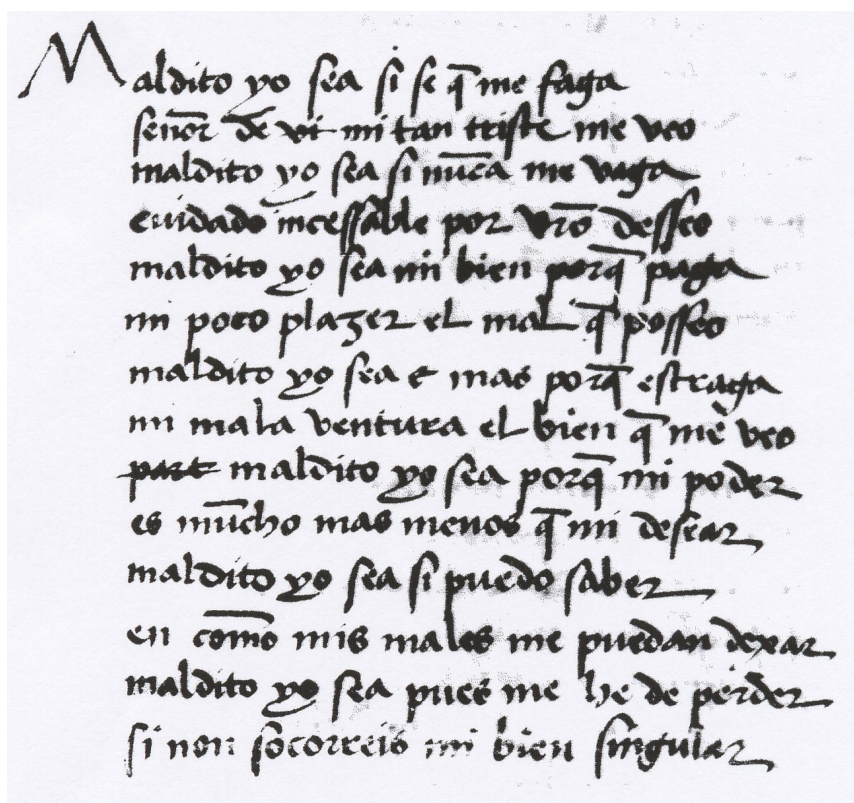 Maldito yo sea si se q̄ me faga
señor de vi mi tan triste me veo
maldito yo sea si nūca me vaga
cuidado incessable por vr̄o desseo
maldito yo sea mi bien porq̄ paga
mi poco plazer el mal q̄ posseo
maldito yo sea e mas porq̄ estraga
mi mala ventura el bien q̄ me veo
maldito yo sea porq̄ mi poder
es mūcho mas menos q̄ mi desear
maldito yo sea si puedo saber
en cōmo mis males me puedan dexar
maldito yo sea pues me he de perder
si non socorreis mi bien singular